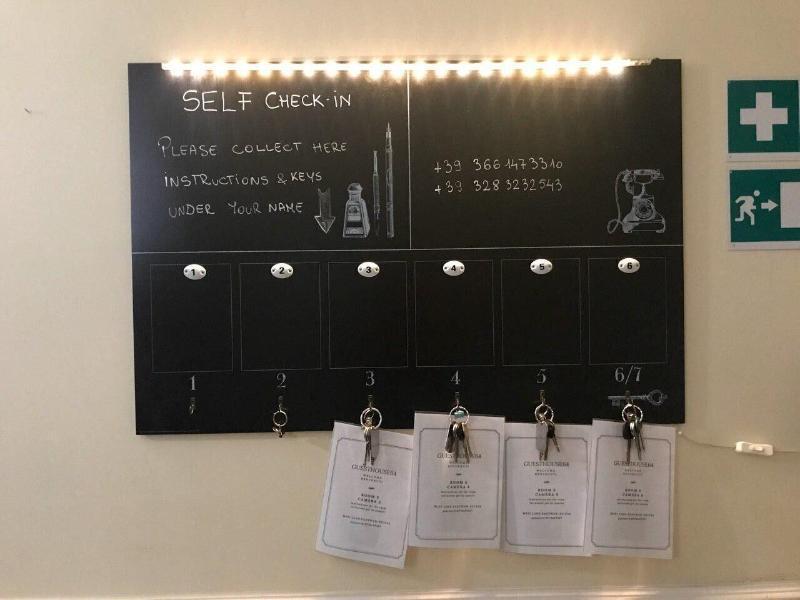 SELF CHECK-IN
PLEASE COLLECT HERE
INSTRUCTIONS & KEYS
UNDER YOUR NAME
+39 366 1473310
+39 328 3232543
1 2 3 4 5 6
1 2 3 4 5 6/7
GUESTHOUSE64
WELCOME
ROOM 3
CAMERA 3
GUESTHOUSE64
WELCOME
ROOM 4
CAMERA 4
GUESTHOUSE64
WELCOME
ROOM 5
CAMERA 5
GUESTHOUSE64
WELCOME
ROOM 6
CAMERA 6